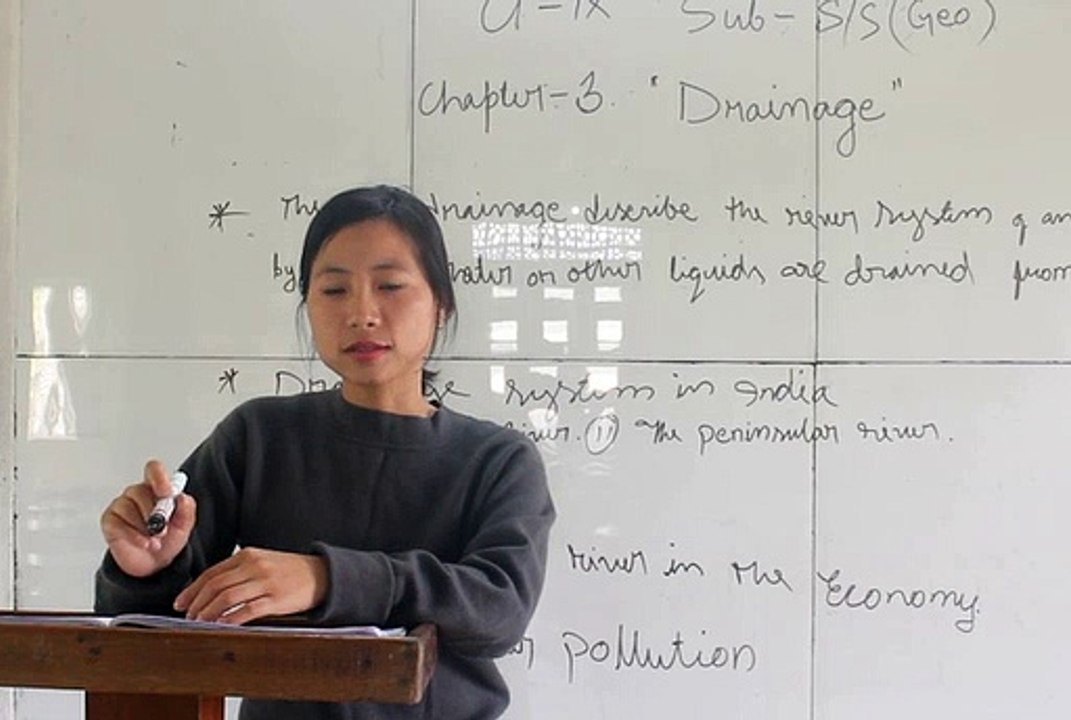 Cl - IX Sub - S/S (Geo)
Chapter - 3. "Drainage"
* The drainage discribe the river system of an
by or other liquids are drained from
* system in India
River. (II) The peninsular river.
river in the Economy.
pollution